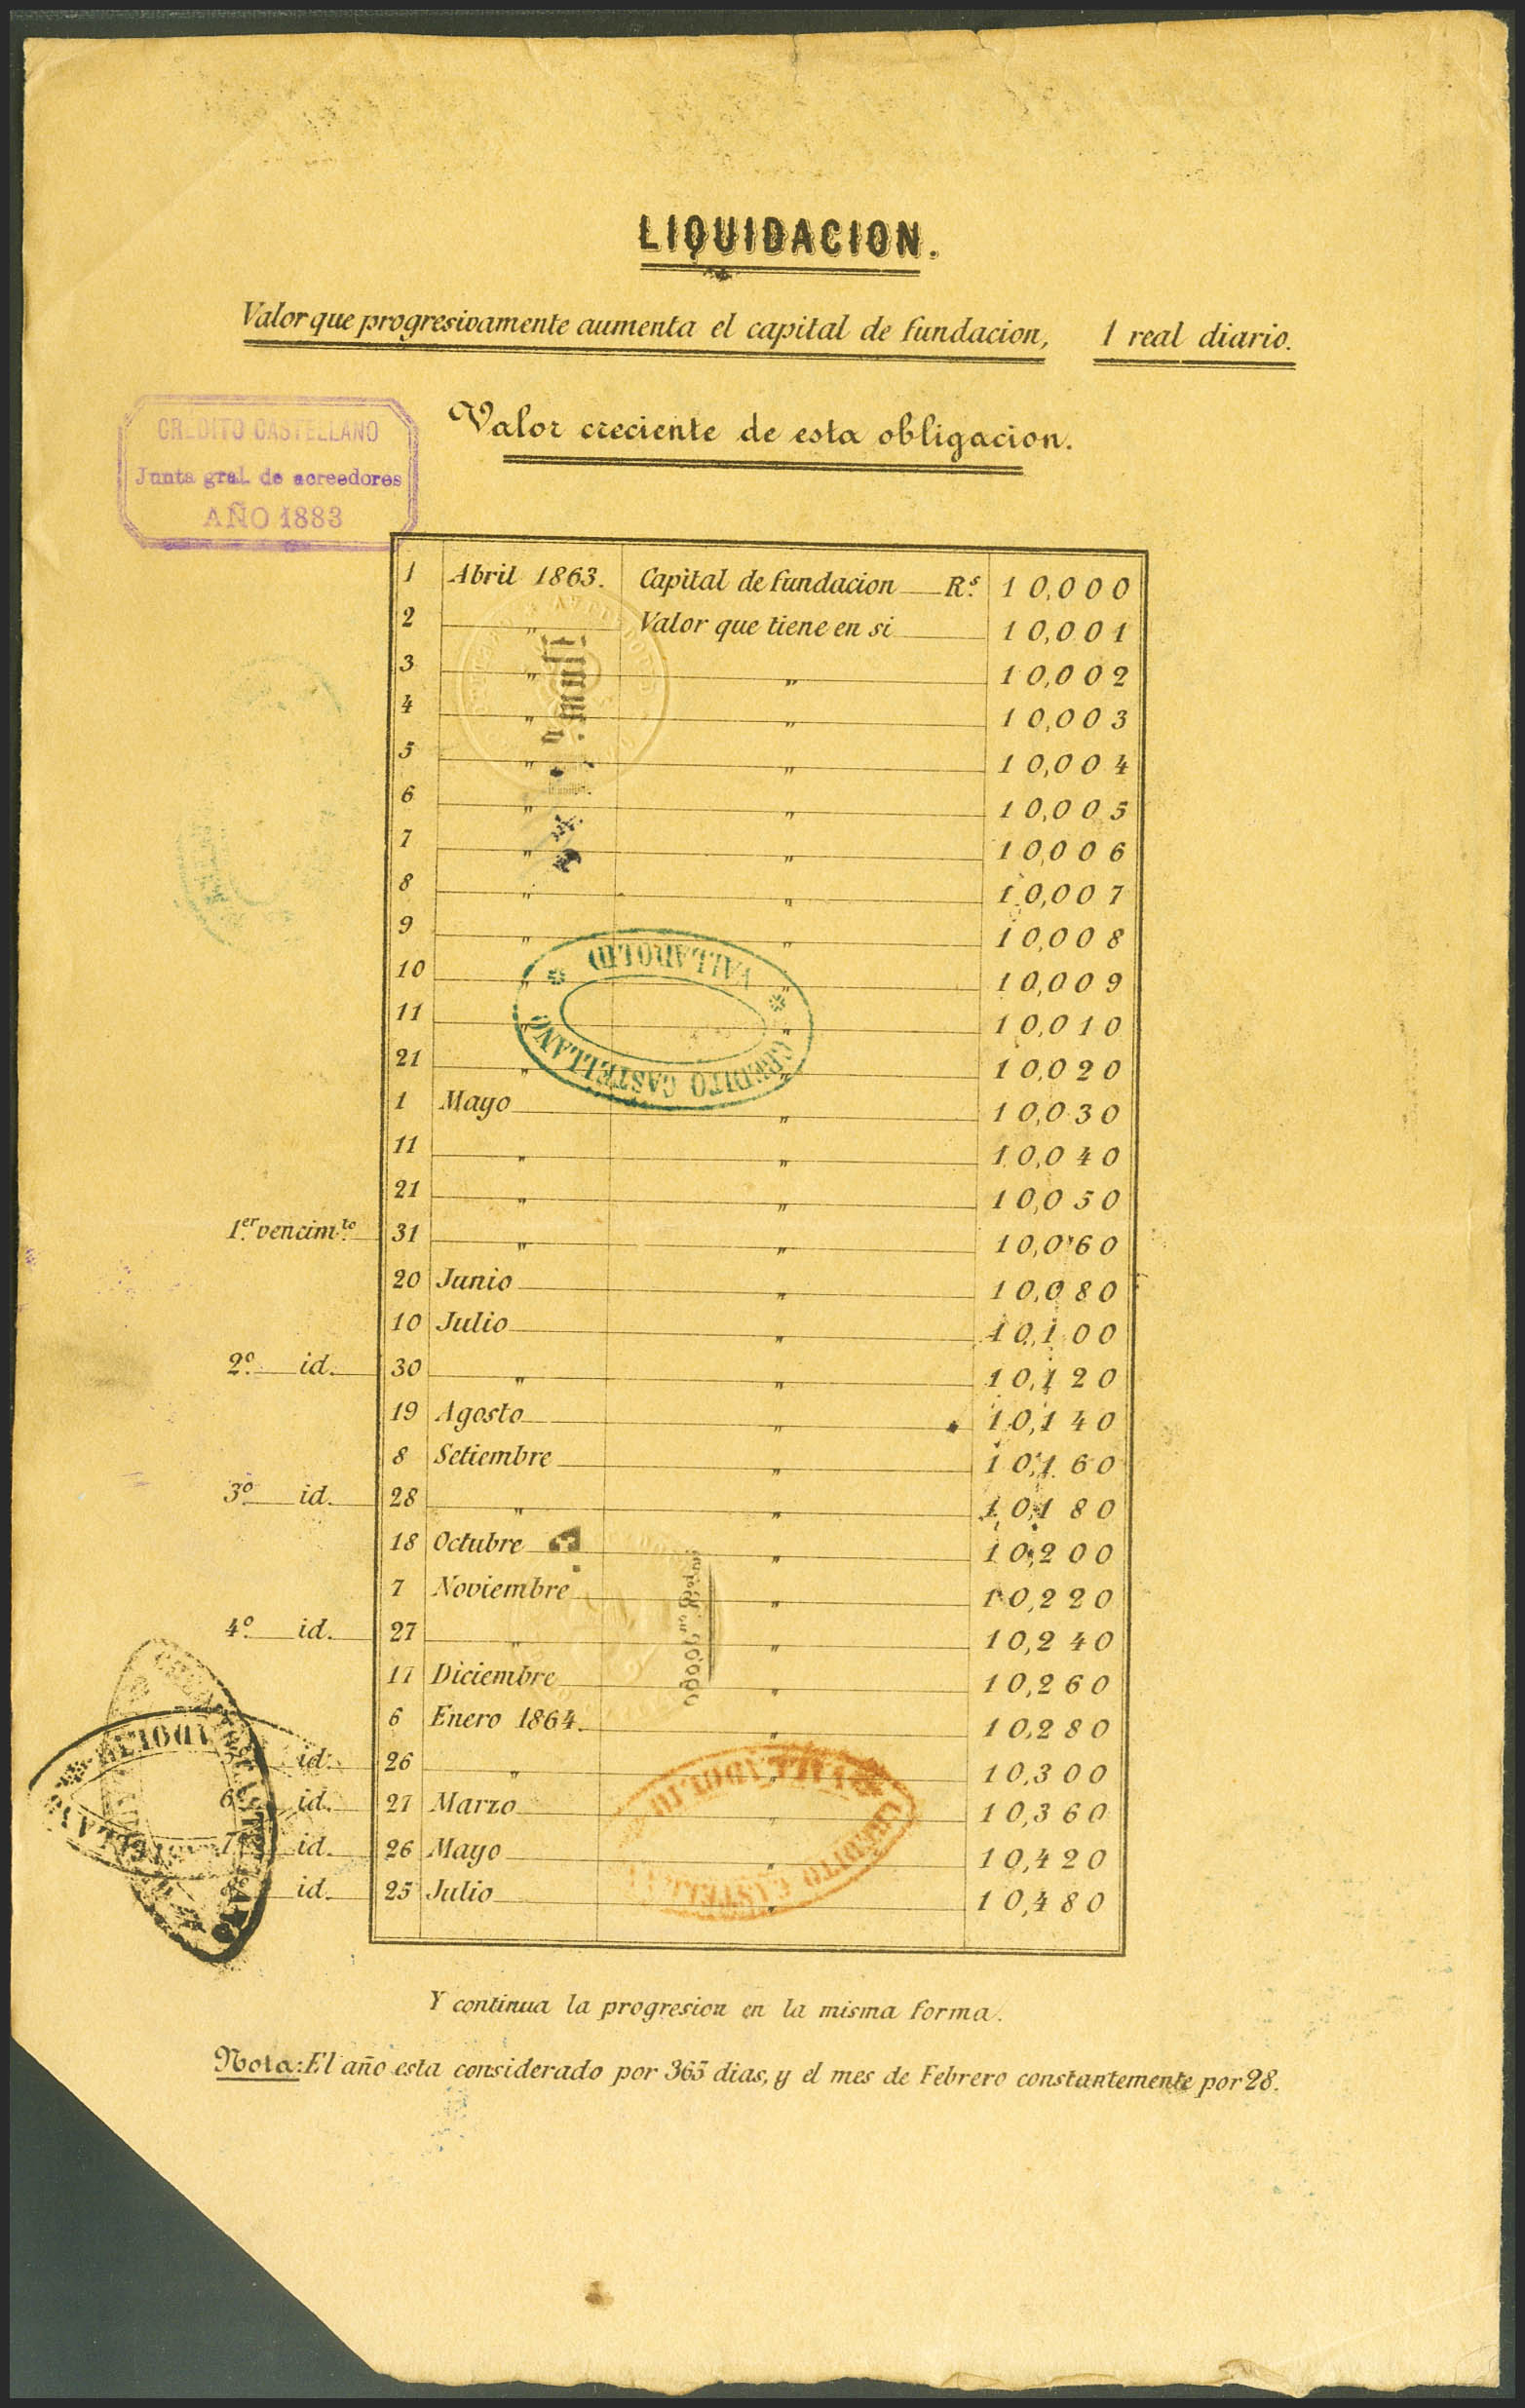 LIQUIDACION.
Valor que progresivamente aumenta el capital de fundacion, 1 real diario.
Valor creciente de esta obligacion.
CREDITO CASTELLANO
Junta gral. de acreedores
AÑO 1883
1 Abril 1863. Capital de fundacion Rs. 10,000
2 " Valor que tiene en si 10,001
3 " " 10,002
4 " " 10,003
5 " " 10,004
6 " " 10,005
7 " " 10,006
8 " " 10,007
9 " " 10,008
10 " " 10,009
11 " " 10,010
21 " " 10,020
1 Mayo " 10,030
11 " " 10,040
21 " " 10,050
1er. vencimto. 31 " " 10,060
20 Junio " 10,080
10 Julio " 10,100
2º id. 30 " " 10,120
19 Agosto " 10,140
8 Setiembre " 10,160
3º id. 28 " " 10,180
18 Octubre " 10,200
7 Noviembre " 10,220
4º id. 27 " " 10,240
17 Diciembre " 10,260
6 Enero 1864. " 10,280
id. 26 " " 10,300
6º id. 27 Marzo " 10,360
7 id. 26 Mayo " 10,420
id. 25 Julio " 10,480
Y continua la progresion en la misma forma.
Nota: El año esta considerado por 365 dias, y el mes de Febrero constantemente por 28.
VALLADOLID
CREDITO CASTELLANO
VALLADOLID
CREDITO CASTELLANO